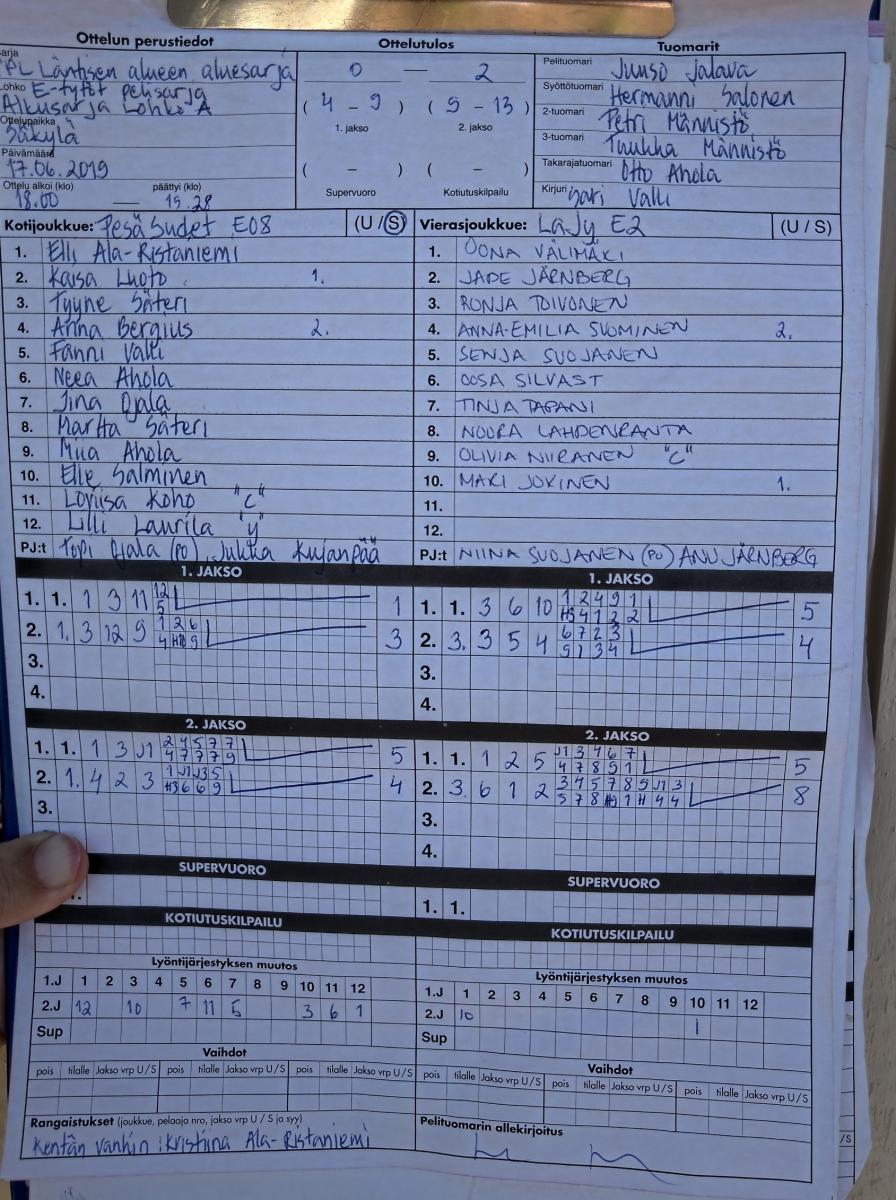 Ottelun perustiedot
Sarja
PPL Läntisen alueen aluesarja
Lohko E-tytöt pelisarja
Alkusarja Lohko A
Ottelupaikka
Säkylä
Päivämäärä
17.06.2019
Ottelu alkoi (klo) päättyi (klo)
18.00 — 19.28
Ottelutulos
0 — 2
( 4 – 9 ) ( 9 – 13 )
1. jakso 2. jakso
( – ) ( – )
Supervuoro Kotiutuskilpailu
Tuomarit
Pelituomari Juuso Jalava
Syöttötuomari Hermanni Salonen
2-tuomari Petri Männistö
3-tuomari Tuukka Männistö
Takarajatuomari Otto Ahola
Kirjuri Sari Valli
Kotijoukkue: PesäSudet E08 (U / S)
1. Elli Ala-Ristaniemi
2. Kaisa Luoto 1.
3. Tyyne Säteri
4. Anna Bergius 2.
5. Fanni Valli
6. Neea Ahola
7. Iina Ojala
8. Martta Säteri
9. Miia Ahola
10. Elle Salminen
11. Loviisa Koho "C"
12. Lilli Laurila "y"
PJ:t Topi Ojala (PO), Jukka Kujanpää
Vierasjoukkue: LaJy E2 (U / S)
1. OONA VÄLIMÄKI
2. JADE JÄRNBERG
3. RONJA TOIVONEN
4. ANNA-EMILIA SUOMINEN 2.
5. SENJA SUOJANEN
6. OOSA SILVAST
7. TINJA TAPANI
8. NOORA LAHDENRANTA
9. OLIVIA NIIRANEN "C"
10. MARI JOKINEN 1.
11.
12.
PJ:t NIINA SUOJANEN (PO) ANU JÄRNBERG
1. JAKSO
1. 1. 1 3 11 12 5 1
2. 1. 3 12 9 1 2 6 4 H10 9 3
3.
4.
1. JAKSO
1. 1. 3 6 10 1 2 4 9 1 H3 4 1 2 2 5
2. 3. 3 5 4 6 7 2 3 9 1 3 4 4
3.
4.
2. JAKSO
1. 1. 1 3 J1 2 4 5 7 7 4 7 7 7 9 5
2. 1. 4 2 3 1 J1 J3 5 H3 6 6 9 4
3.
2. JAKSO
1. 1. 1 2 5 J1 3 4 6 7 4 7 8 9 1 5
2. 3. 6 1 2 3 4 5 7 8 9 J1 3 5 7 8 H9 1 H 4 4 8
3.
4.
SUPERVUORO
SUPERVUORO
1. 1.
KOTIUTUSKILPAILU
KOTIUTUSKILPAILU
Lyöntijärjestyksen muutos
1.J 1 2 3 4 5 6 7 8 9 10 11 12
2.J 12 10 7 11 5 3 6 1
Sup
Lyöntijärjestyksen muutos
1.J 1 2 3 4 5 6 7 8 9 10 11 12
2.J 10 1
Sup
Vaihdot
pois tilalle Jakso vrp U / S pois tilalle Jakso vrp U / S pois tilalle Jakso vrp U / S
Vaihdot
pois tilalle Jakso vrp U / S pois tilalle Jakso vrp U / S pois tilalle Jakso vrp U / S
Rangaistukset (joukkue, pelaaja nro, jakso vrp U / S ja syy)
Kentän vanhin : Kristiina Ala-Ristaniemi
Pelituomarin allekirjoitus
/S